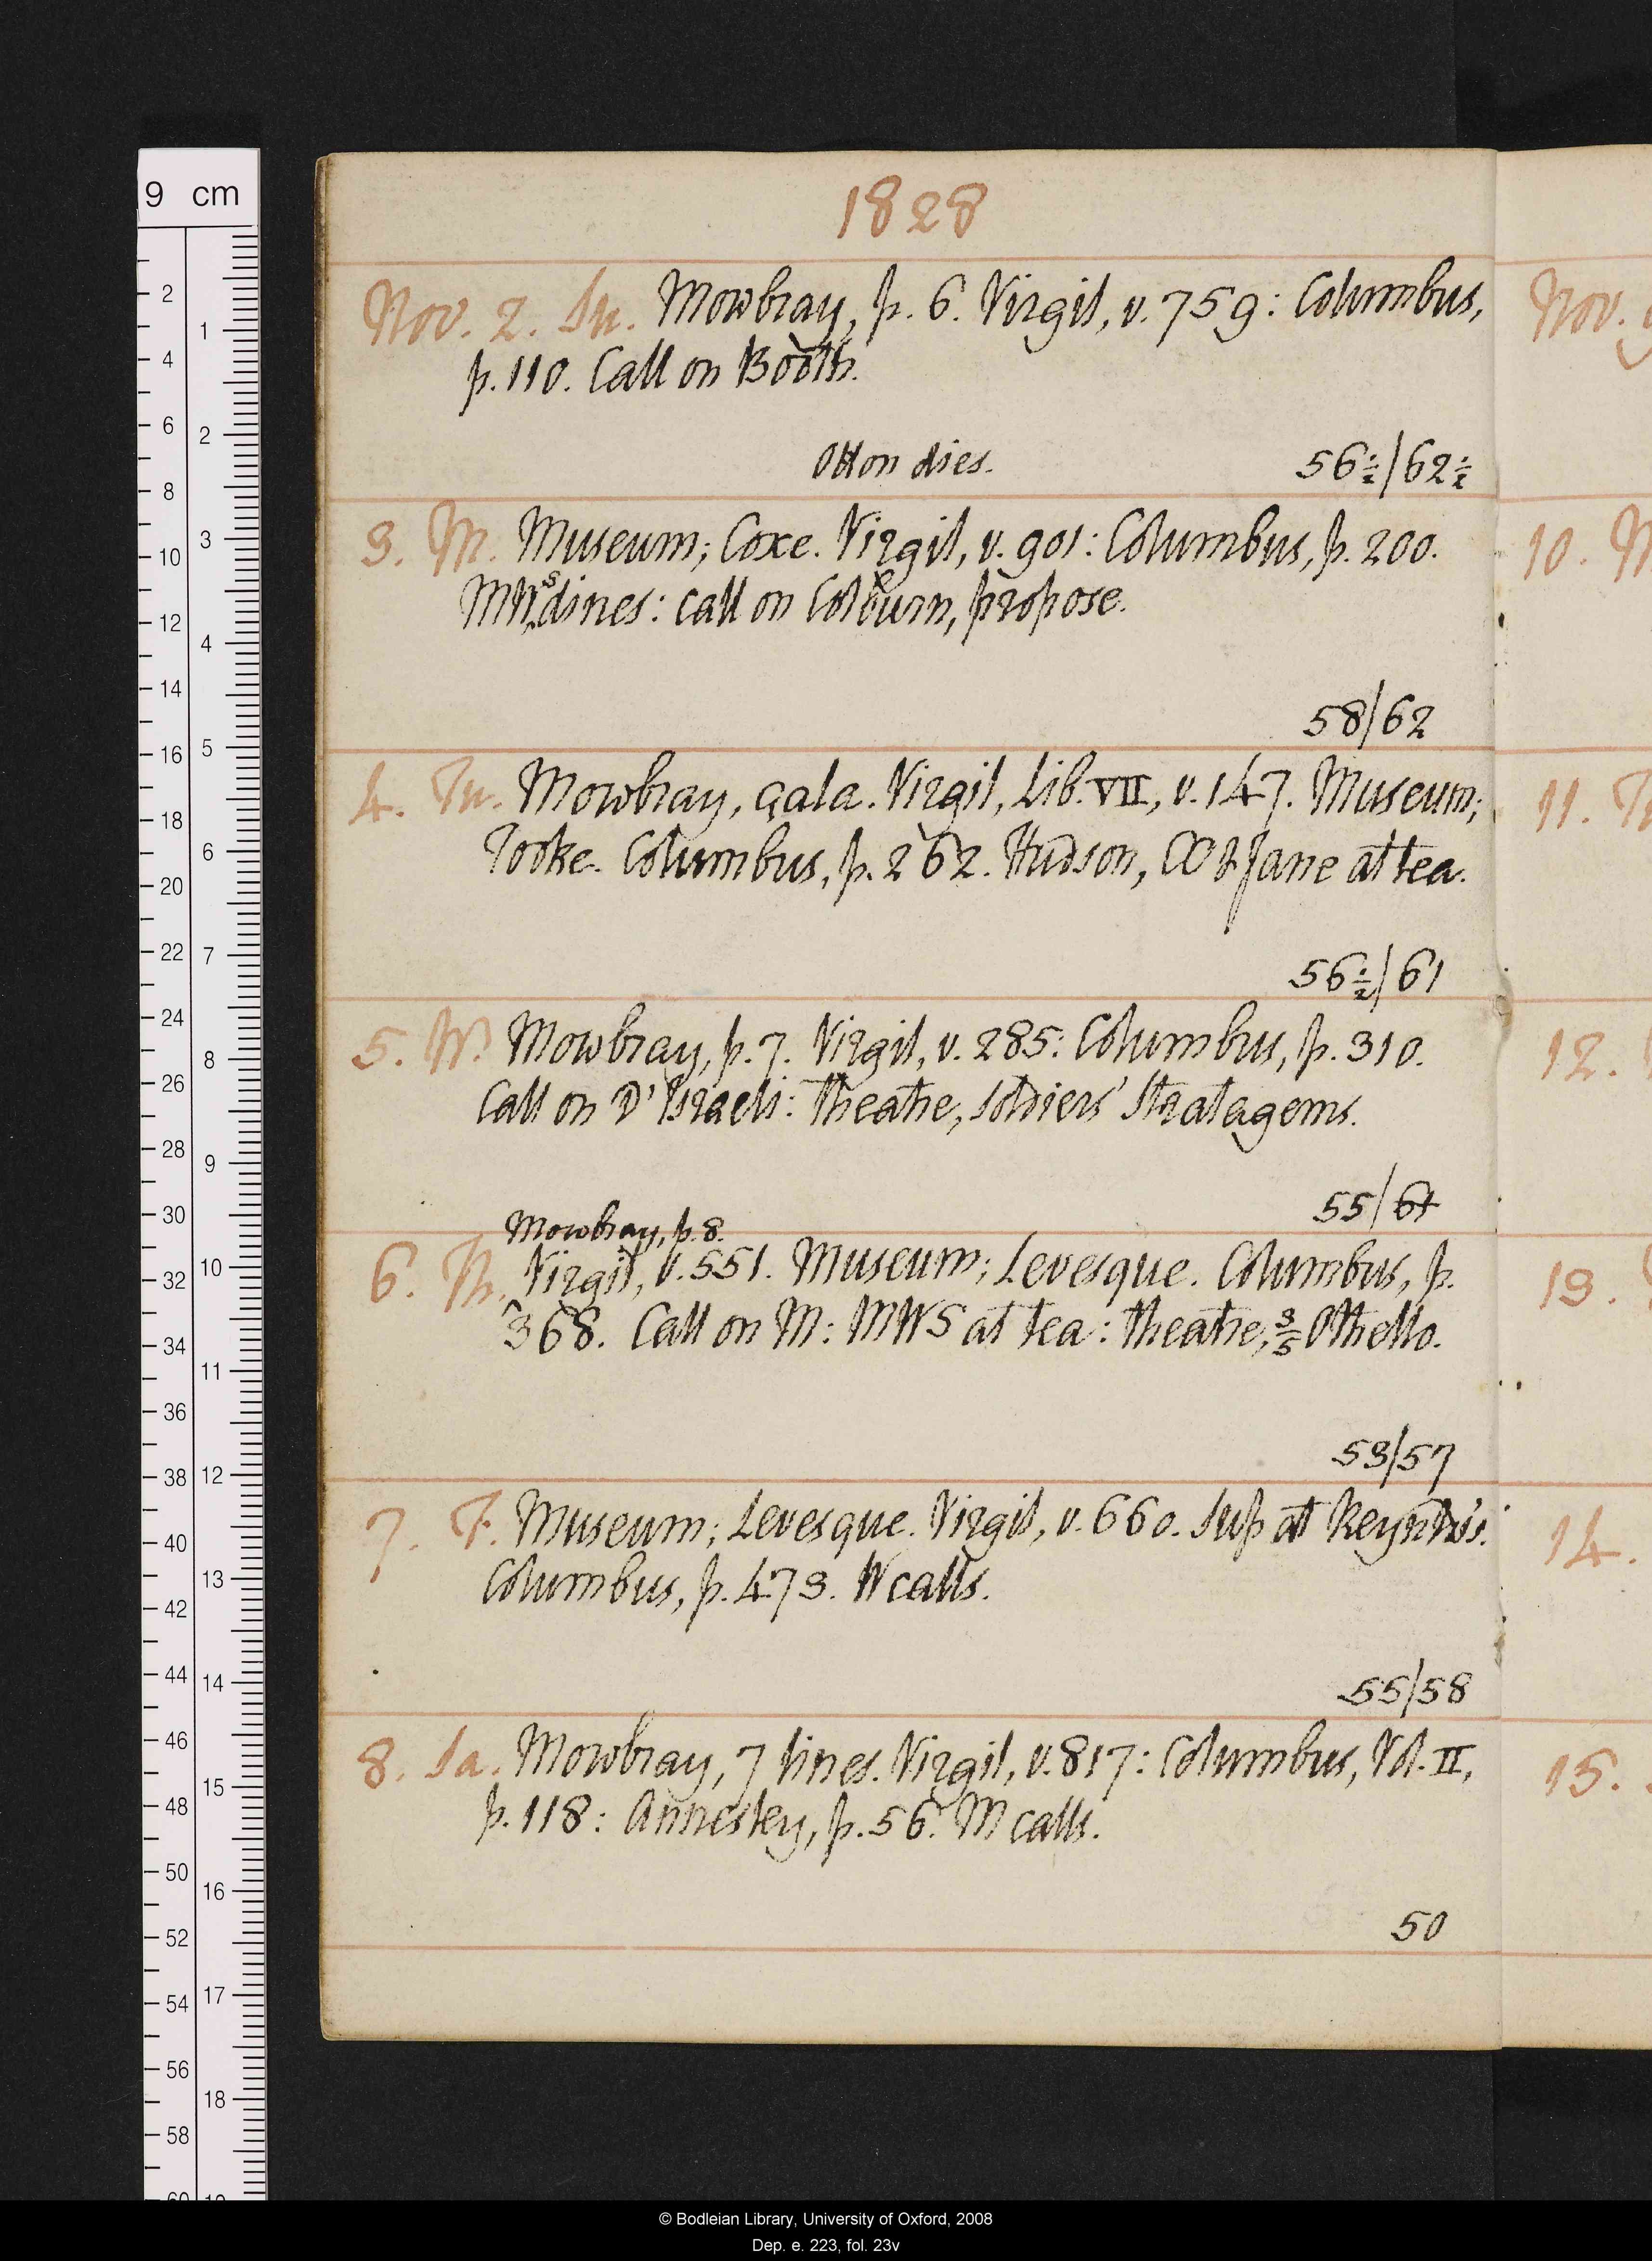 1828
Nov. 2. Su. Mowbray, p. 6. Virgil, v. 759: Columbus,
p. 110. Call on Booth.
Otton dies. 56½/62½
3. M. Museum; Coxe. Virgil, v. 901: Columbus, p. 200.
MWS dines: call on Colburn, propose.
58/62
4. Tu. Mowbray, gala. Virgil, Lib. VII, v. 147. Museum;
Tooke. Columbus, p. 262. Hudson, CC & Jane at tea.
56½/61
5. W. Mowbray, p. 7. Virgil, v. 285: Columbus, p. 310.
Call on D'Israeli: theatre, Soldiers' Stratagems.
55/61
Mowbray, p. 8.
6. Th. Virgil, v. 551. Museum; Levesque. Columbus, p.
368. Call on M: MWS at tea: theatre, 3/5 Othello.
53/57
7. F. Museum; Levesque. Virgil, v. 660. Sup at
Columbus, p. 473. W calls.
55/58
8. Sa. Mowbray, 7 lines. Virgil, v. 817: Columbus, Vol. II,
p. 118: Annesley, p. 56. M calls.
50
Nov. 9
10. M
11. T
12.
13.
14.
15.
9 cm
2
4
6
8
10
12
14
16
18
20
22
24
26
28
30
32
34
36
38
40
42
44
46
48
50
52
54
56
58
60
1
2
3
4
5
6
7
8
9
10
11
12
13
14
15
16
17
18
19
© Bodleian Library, University of Oxford, 2008
Dep. e. 223, fol. 23v